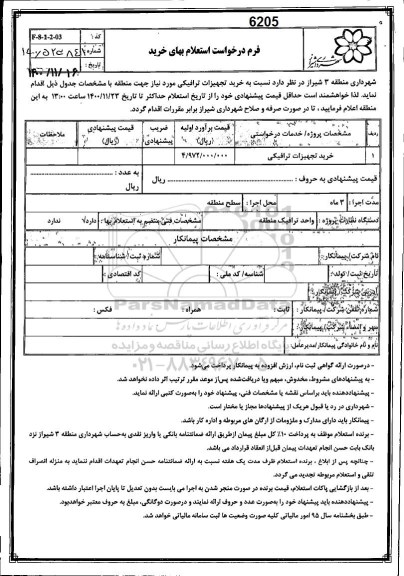 6205
کد : F-8-1-2-03
شماره :
تاریخ : ۱۴۰۰/۱۱/۱۶
فرم درخواست استعلام بهای خرید
شهرداری شیراز
شهرداری منطقه ۳ شیراز در نظر دارد نسبت به خرید تجهیزات ترافیکی مورد نیاز جهت منطقه با مشخصات جدول ذیل اقدام
نماید. لذا خواهشمند است حداقل قیمت پیشنهادی خود را از تاریخ استعلام حداکثر تا تاریخ ۱۴۰۰/۱۱/۲۳ ساعت ۱۳:۰۰ به این
منطقه اعلام فرمایید ، تا در صورت صرفه و صلاح شهرداری شیراز برابر مقررات اقدام گردد.
ردیف مشخصات پروژه/ خدمات درخواستی قیمت برآورد اولیه (ریال) ضریب پیشنهادی قیمت پیشنهادی (ریال) ملاحظات
۱ خرید تجهیزات ترافیکی ۴/۹۷۲/۰۰۰/۰۰۰
قیمت پیشنهادی به حروف : ریال به عدد : ریال
مدت اجرا : ۳ ماه محل اجرا : سطح منطقه
دستگاه نظارت پروژه : واحد ترافیک منطقه مشخصات فنی منضم به استعلام بها : دارد ندارد
مشخصات پیمانکار
نام شرکت/ پیمانکار: شماره ثبت / شناسنامه :
تاریخ ثبت / تولد: شناسه/ کد ملی : کد اقتصادی :
آدرس شرکت/ پیمانکار:
شماره تلفن شرکت/ پیمانکار: ثابت : همراه : فکس :
مهر و امضاء شرکت/ پیمانکار:
نام و نام خانوادگی پیمانکار/مدیرعامل:
ParsNamadData
مرکز فرآوری اطلاعات پارس نماد داده ها
پایگاه اطلاع رسانی مناقصه و مزایده
۰۲۱-۸۸۳۴۹۶۷۰
- درصورت ارائه گواهی ثبت نام، ارزش افزوده به پیمانکار پرداخت می‌شود.
- به پیشنهادهای مشروط، مخدوش، مبهم ویا دریافت‌شده پس‌از موعد مقرر ترتیب اثر داده نخواهد شد.
- پیشنهاددهنده باید براساس نقشه یا مشخصات فنی، پیشنهاد خود را به‌صورت کتبی ارائه نماید.
- شهرداری در رد یا قبول هریک از پیشنهادها مجاز یا مختار است.
- پیمانکار باید دارای مدارک و ملزومات از ارگان های مربوطه و اداره کار باشد.
- برنده استعلام موظف به پرداخت ۱۰٪ کل مبلغ پیمان ازطریق ارائه ضمانتنامه بانکی یا واریز نقدی به‌حساب شهرداری منطقه ۳ شیراز نزد
بانک بابت حسن انجام تعهدات پیمان قبل‌از انعقاد قرارداد می باشد.
- چنانچه پس از ابلاغ ، برنده استعلام ظرف مدت یک هفته نسبت به ارائه ضمانتنامه حسن انجام تعهدات اقدام ننماید به منزله انصراف
تلقی و استعلام مربوطه تجدید می گردد.
- بعد از بازگشایی پاکات استعلام، قیمت برنده در صورت منجر شدن به اجرا می بایست بدون تعدیل تا پایان اجرا اعتبار داشته باشد.
- پیشنهاددهنده باید پیشنهاد خود را به‌صورت عدد و حروف ارائه نمایند و درصورت دوگانگی، مبلغ به حروف معتبر خواهدبود.
- طبق بخشنامه سال ۹۵ امور مالیاتی کلیه صورت وضعیت ها ثبت سامانه مالیاتی خواهد شد.